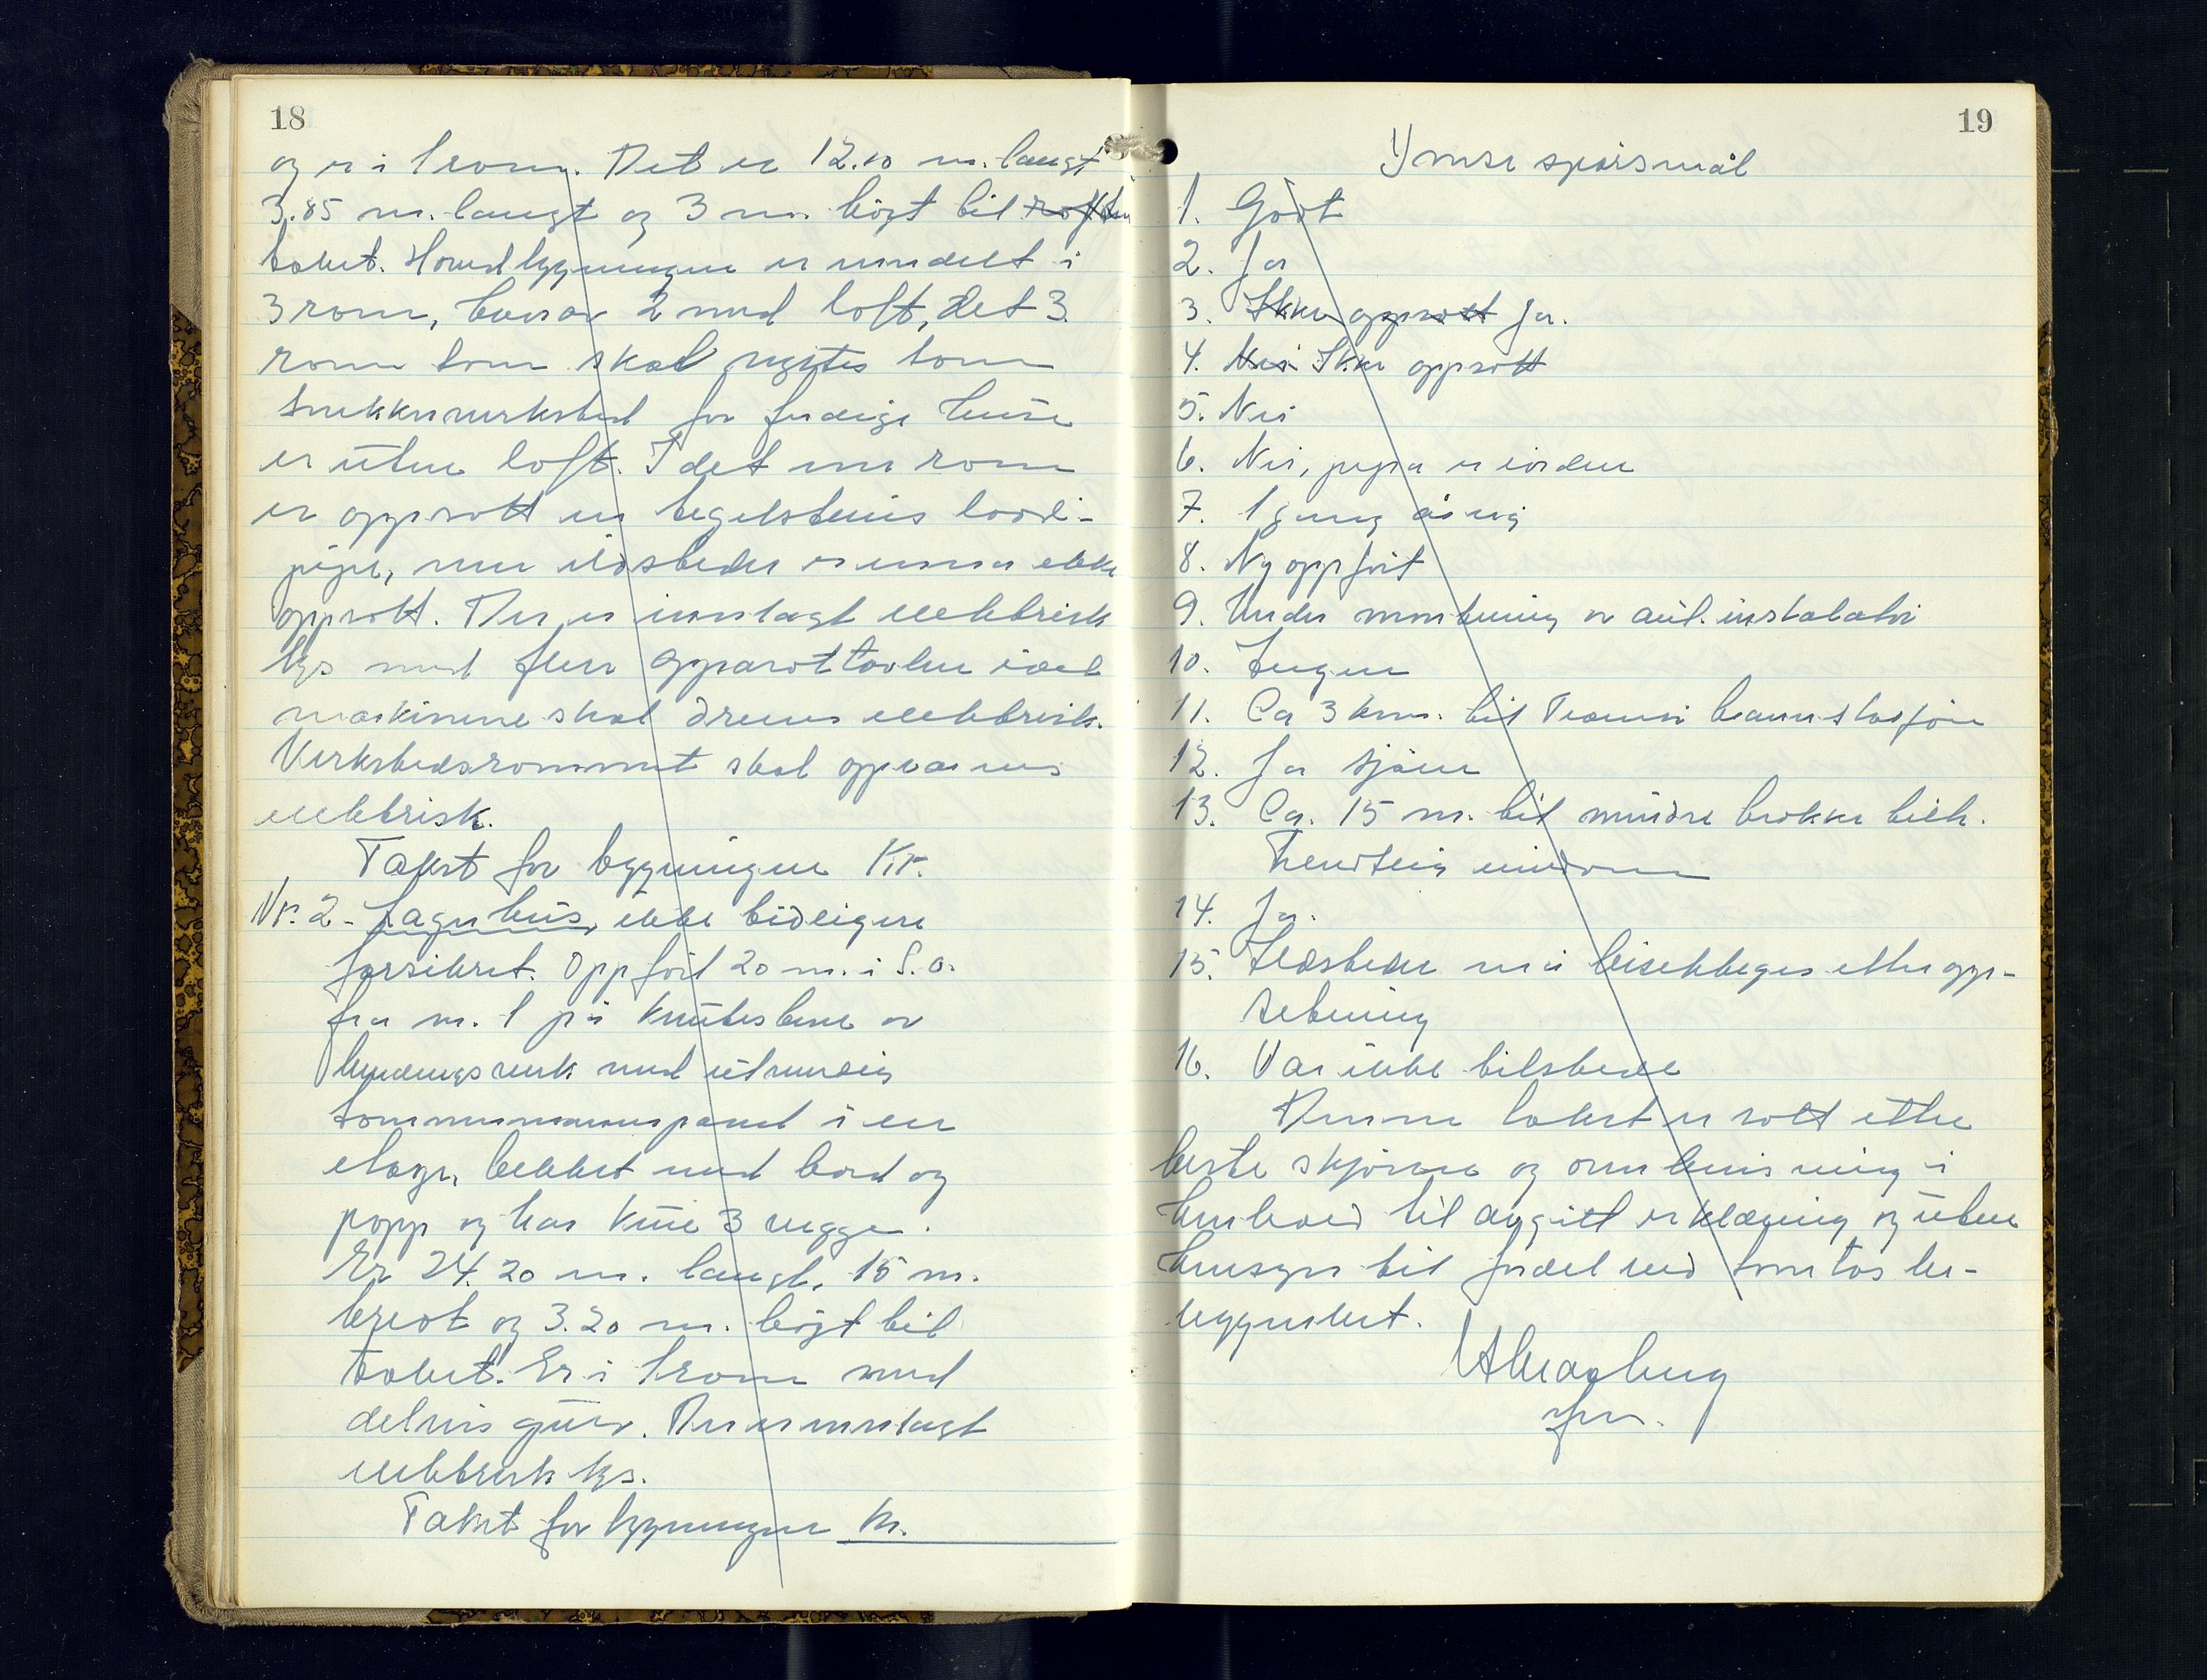 18
og er i 1 rom. Det er 12.10 m. langt
3.85 m. langt og 3 m. högt til raften
taket. Hovedbygningen er inndelt i
3 rom, hvorav 2 med loft, det 3.
rom som skal nyttes som
snekkerverksted for ferdige huse
er uten loft. I det ene rom
er oppsatt en tegelsteins loddpipe, men ildsteder er ennu ikke
oppsatt. Der er innlagt elektrisk
lys med flere apparattavler idet
maskinene skal drives elektrisk.
Verkstedsrommet skal oppvarmes
elektrisk.
Takst for bygningen Kr.
Nr. 2 - Lagerhus, ikke tidligere
forsikret. Oppfört 20 m. i S.O.
fra nr. 1 på knutesteine av
bindingsverk med utvendig
tommermannspanel i en
etage, tekket med bord og
papp og har kun 3 vegge.
Er 24.20 m. langt, 15 m.
bredt og 3.20 m. högt til
taket. Er i 1 rom med
delvis gulv. Der er innlagt
elektrisk lys.
Takst for bygningen Kr.
19
Ymse spörsmål
1. Godt
2. Ja
3. Ikke oppsatt Ja.
4. Nei Ikke oppsatt
5. Nei
6. Nei, pipa er i orden
7. 1 gang årlig
8. Ny oppfört
9. Under montering av aut. installatör
10. Ingen
11. Ca 3 km. til Tromsö brannstasjon
12. Ja sjöen
13. Ca. 15 m. til mindre brakke tilh.
eiendom
14. Ja.
15. Ildsteder må besiktiges etter oppsetning
16. Var ikke tilstede
Denne takst er satt etter
beste skjönn og overbevisning i
henhold til avgitt erklæring og uten
hensyn til fordel ved tomtas beliggenhet.
jun.